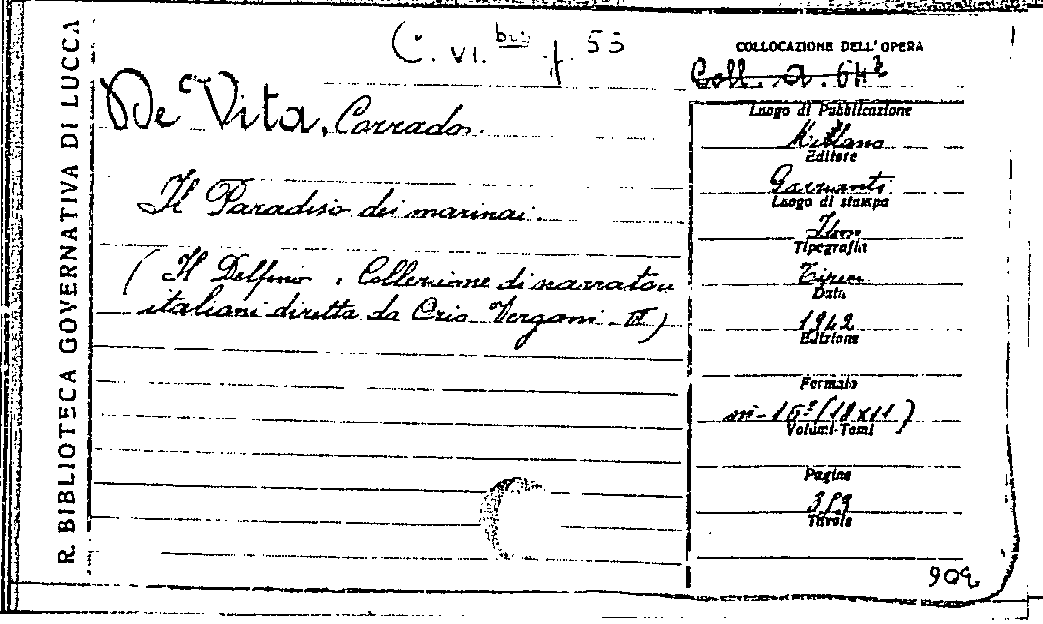 R. BIBLIOTECA GOVERNATIVA DI LUCCA
C. VI. bis f. 53
De Vita, Corrado.
Il Paradiso dei marinai.
( Il Delfino. Collezione di narratori
italiani diretta da Orio Vergani - VI )
COLLOCAZIONE DELL'OPERA
Coll. A. 64
Luogo di Pubblicazione
Milano
Editore
Garzanti
Luogo di stampa
Idem
Tipografia
Data
1942
Edizione
Formato
in-16° (18x11)
Volumi-Tomi
Pagine
319
Tavole